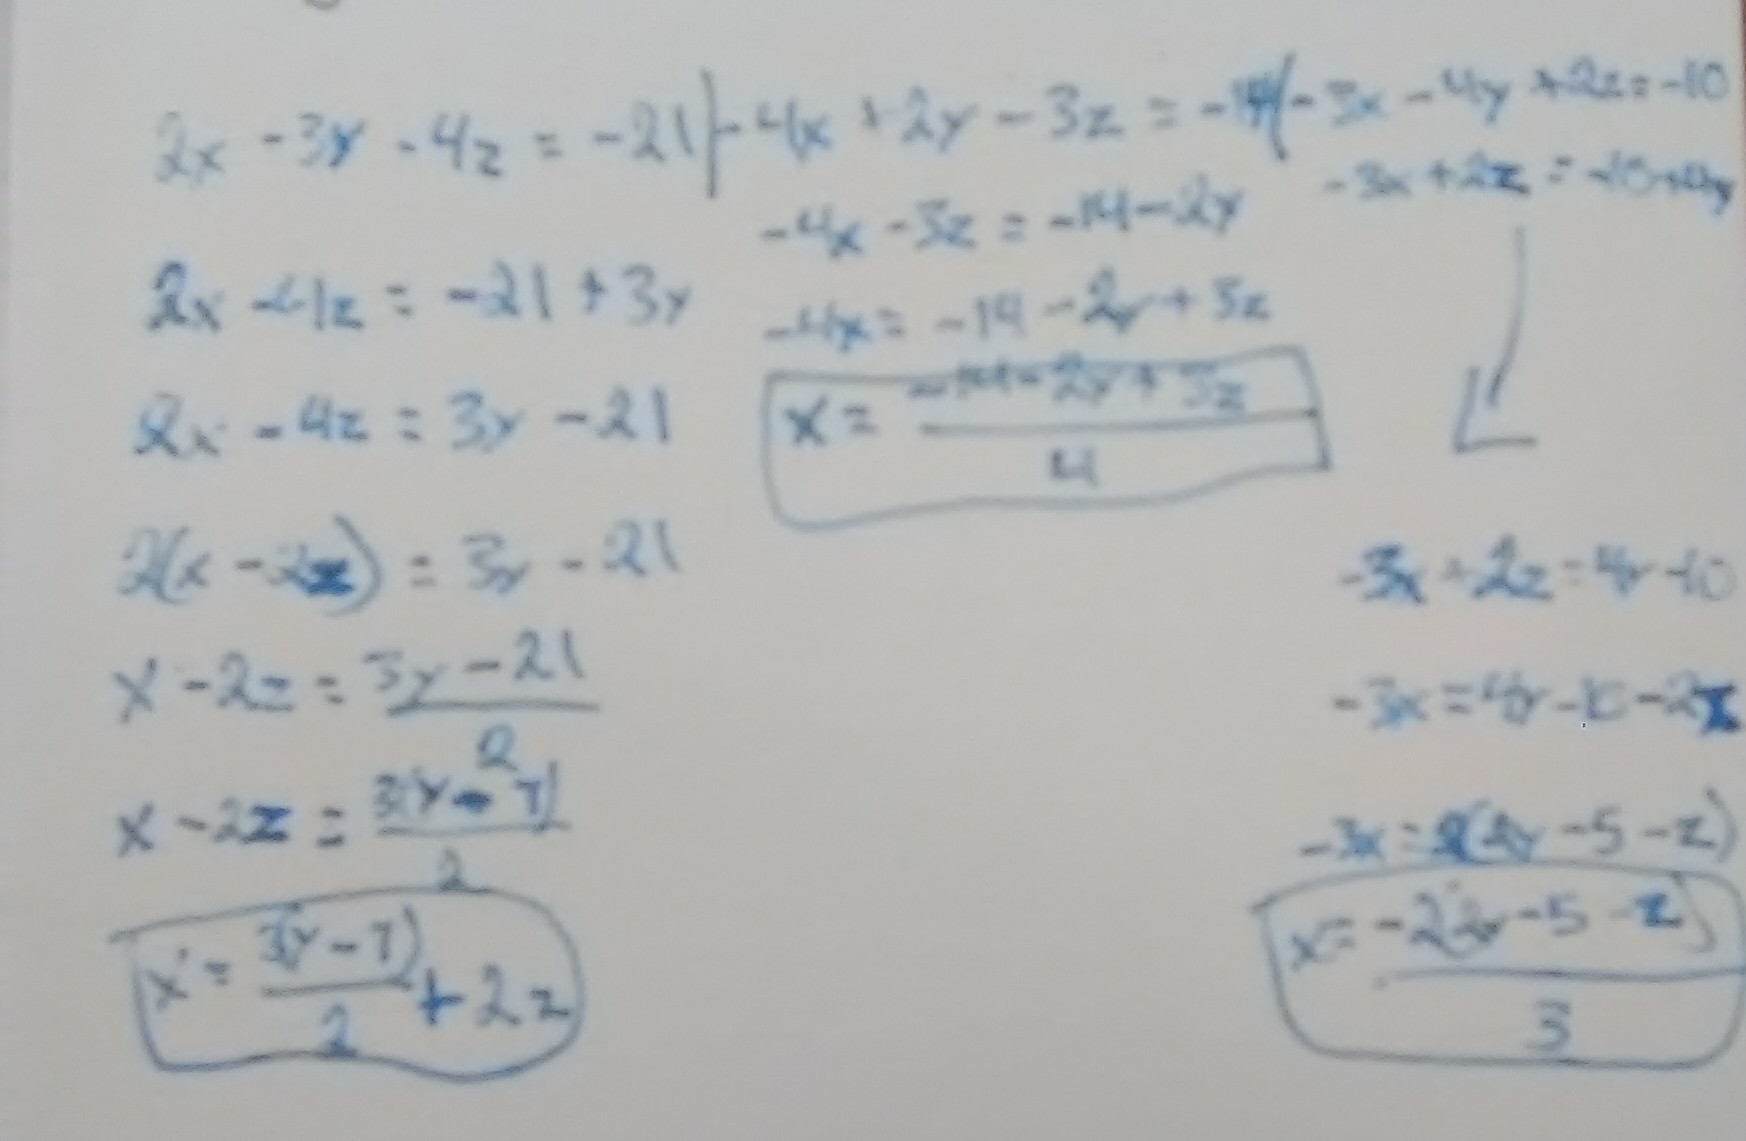 2x - 3y - 4z = -21 | -4x + 2y - 3z = -14 | -3x - 4y + 2z = -10
-4x - 3z = -14 - 2y
-3x + 2z = -10 + 4y
2x - 4z = -21 + 3y
-4x = -14 - 2y + 3z
2x - 4z = 3y - 21
x = (-14 - 2y + 3z) / 4
2(x - 2z) = 3y - 21
-3x + 2z = 4y - 10
x - 2z = (3y - 21) / 2
-3x = 4y - 10 - 2z
x - 2z = 3(y - 7) / 2
-3x = 2(2y - 5 - z)
x = 3(y - 7) / 2 + 2z
x = -2(2y - 5 - z) / 3